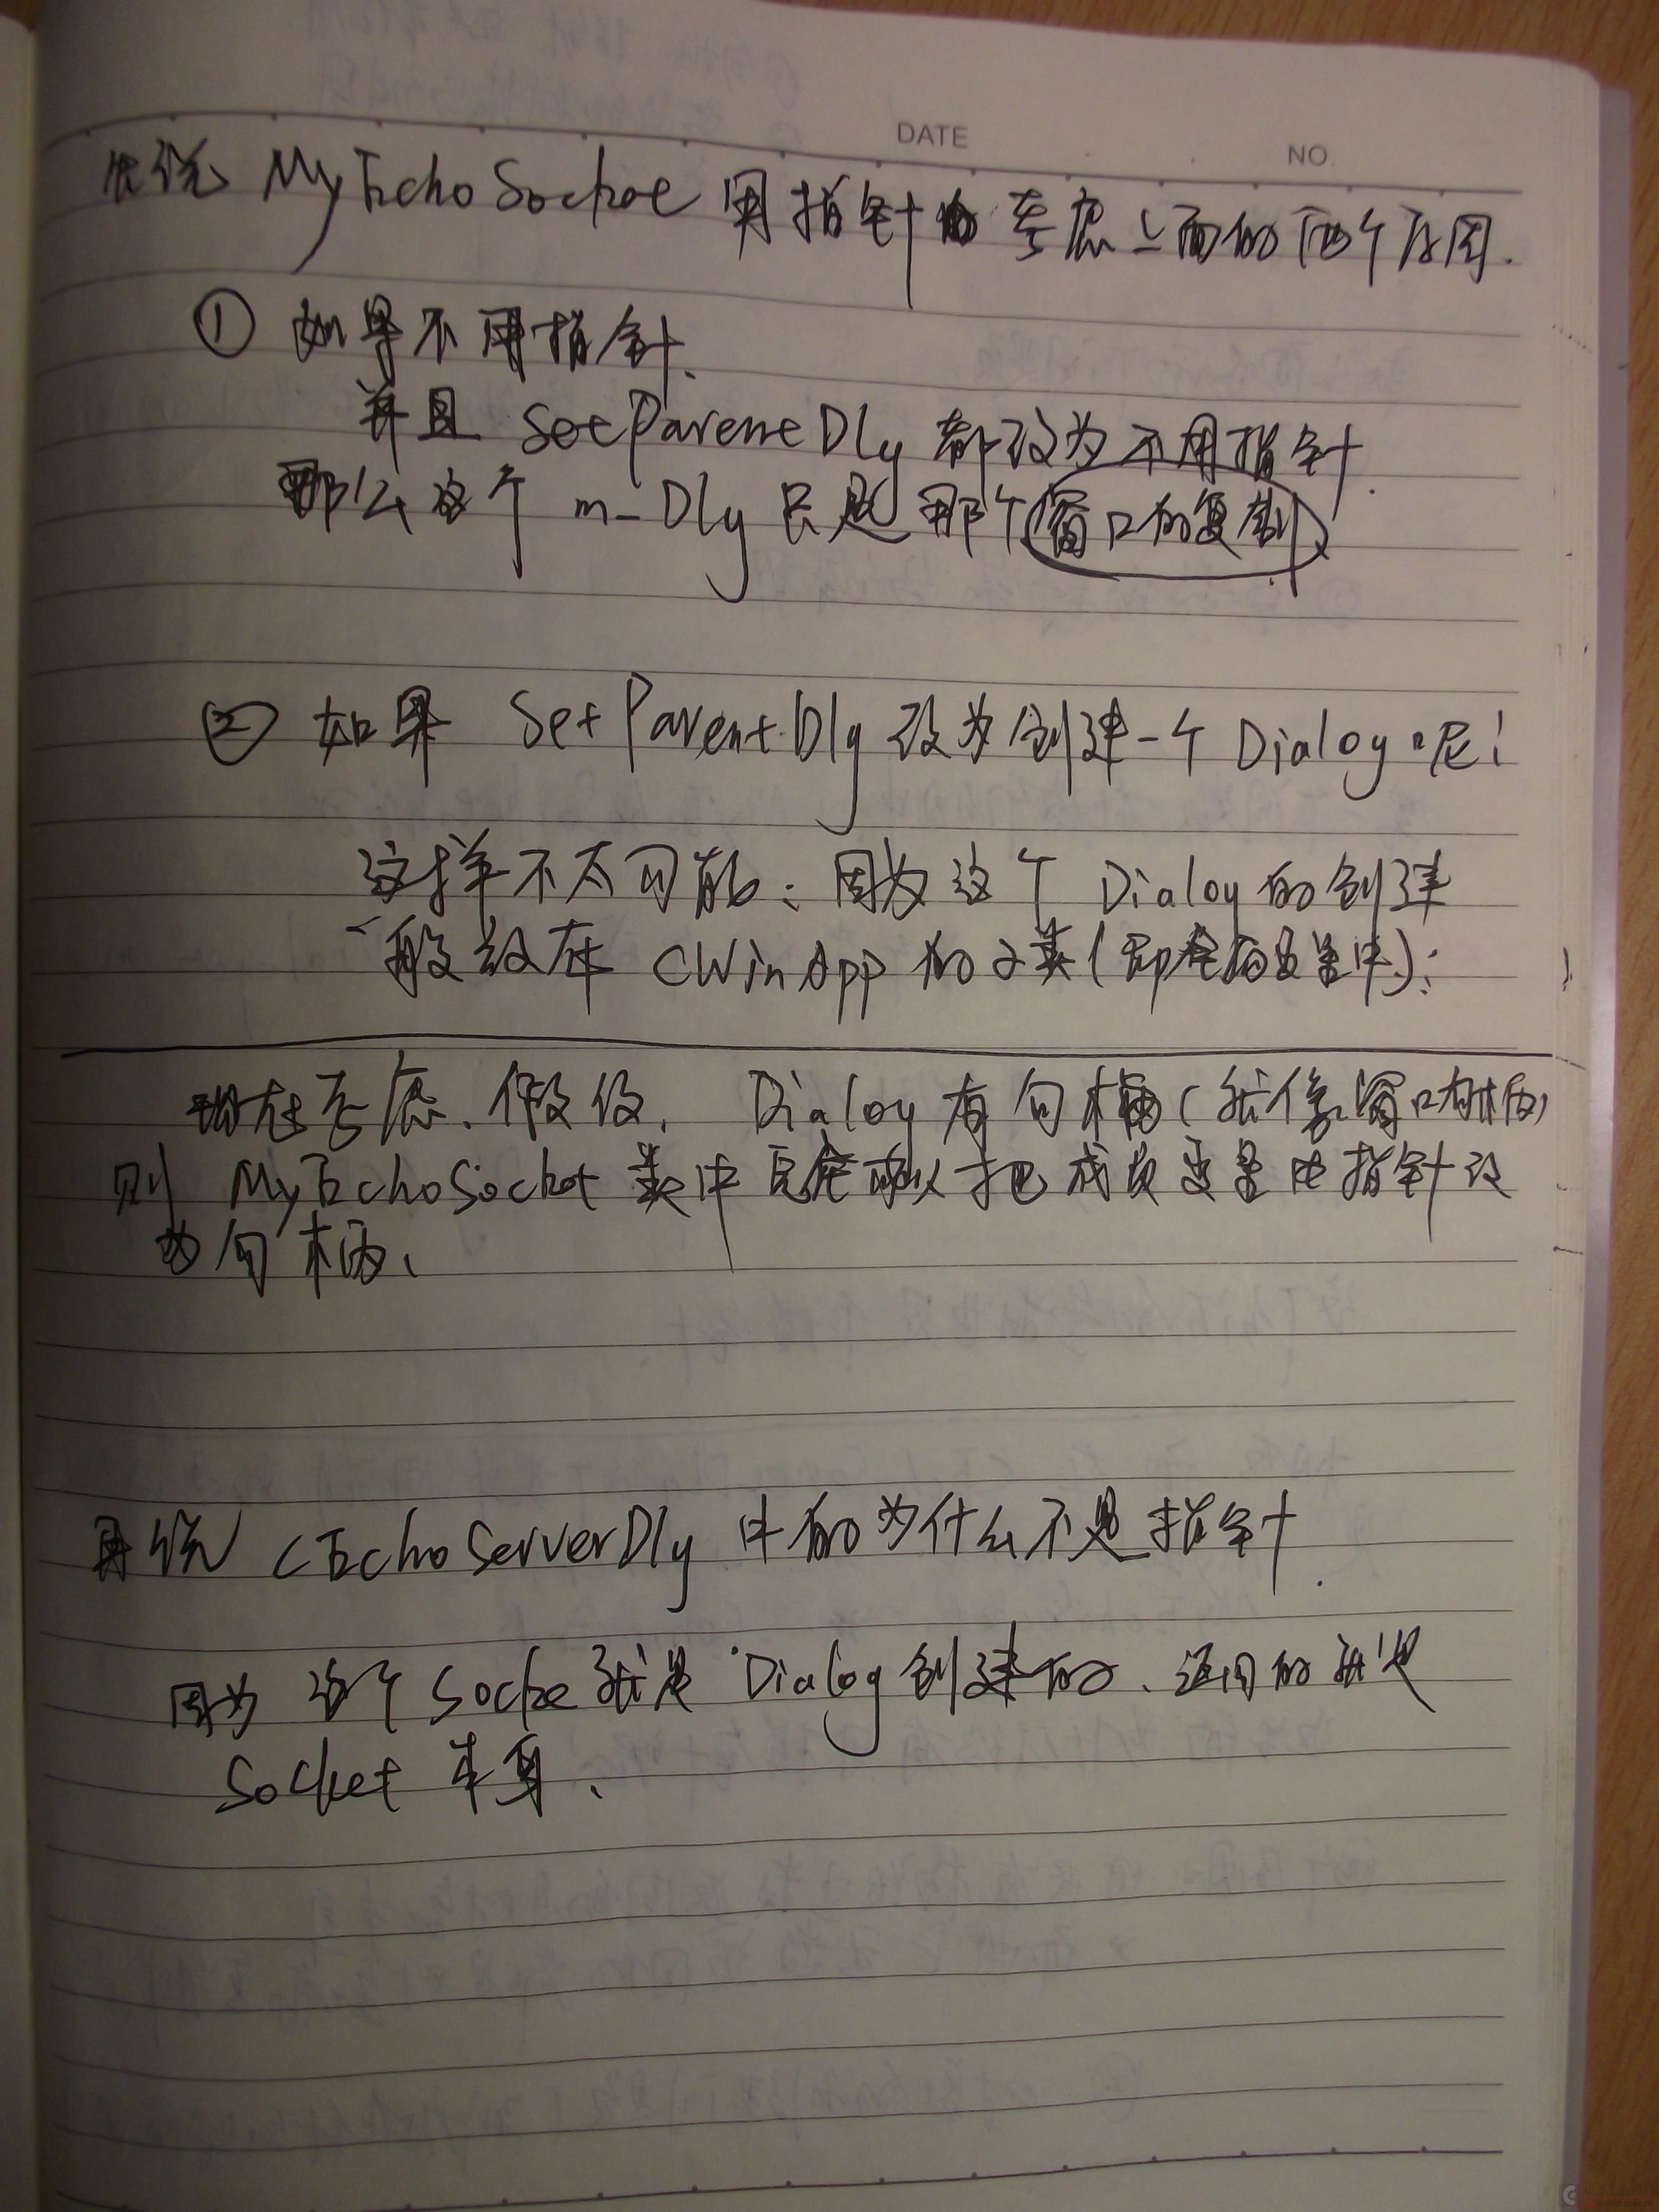 DATE
NO.
先说 MyEchoSocket 用指针的 考虑上面的两个原因.
① 如果不用指针.
并且 SetParentDlg 都设为不用指针.
那么这个 m_Dlg 只是那个窗口的复制
② 如果 SetParentDlg 设为创建一个 Dialog 呢!
这样不太可能: 因为这个 Dialog 的创建
一般放在 CWinApp 的子类(即全局变量中);
现在考虑. 假设. Dialog 有句柄(就像窗口有句柄)
则 MyEchoSocket 类中完全可以把成员变量由指针设
为句柄.
再说 CEchoServerDlg 中的为什么不是指针.
因为 这个 Socke 就是 Dialog 创建的. 返回的就是
Socket 本身.